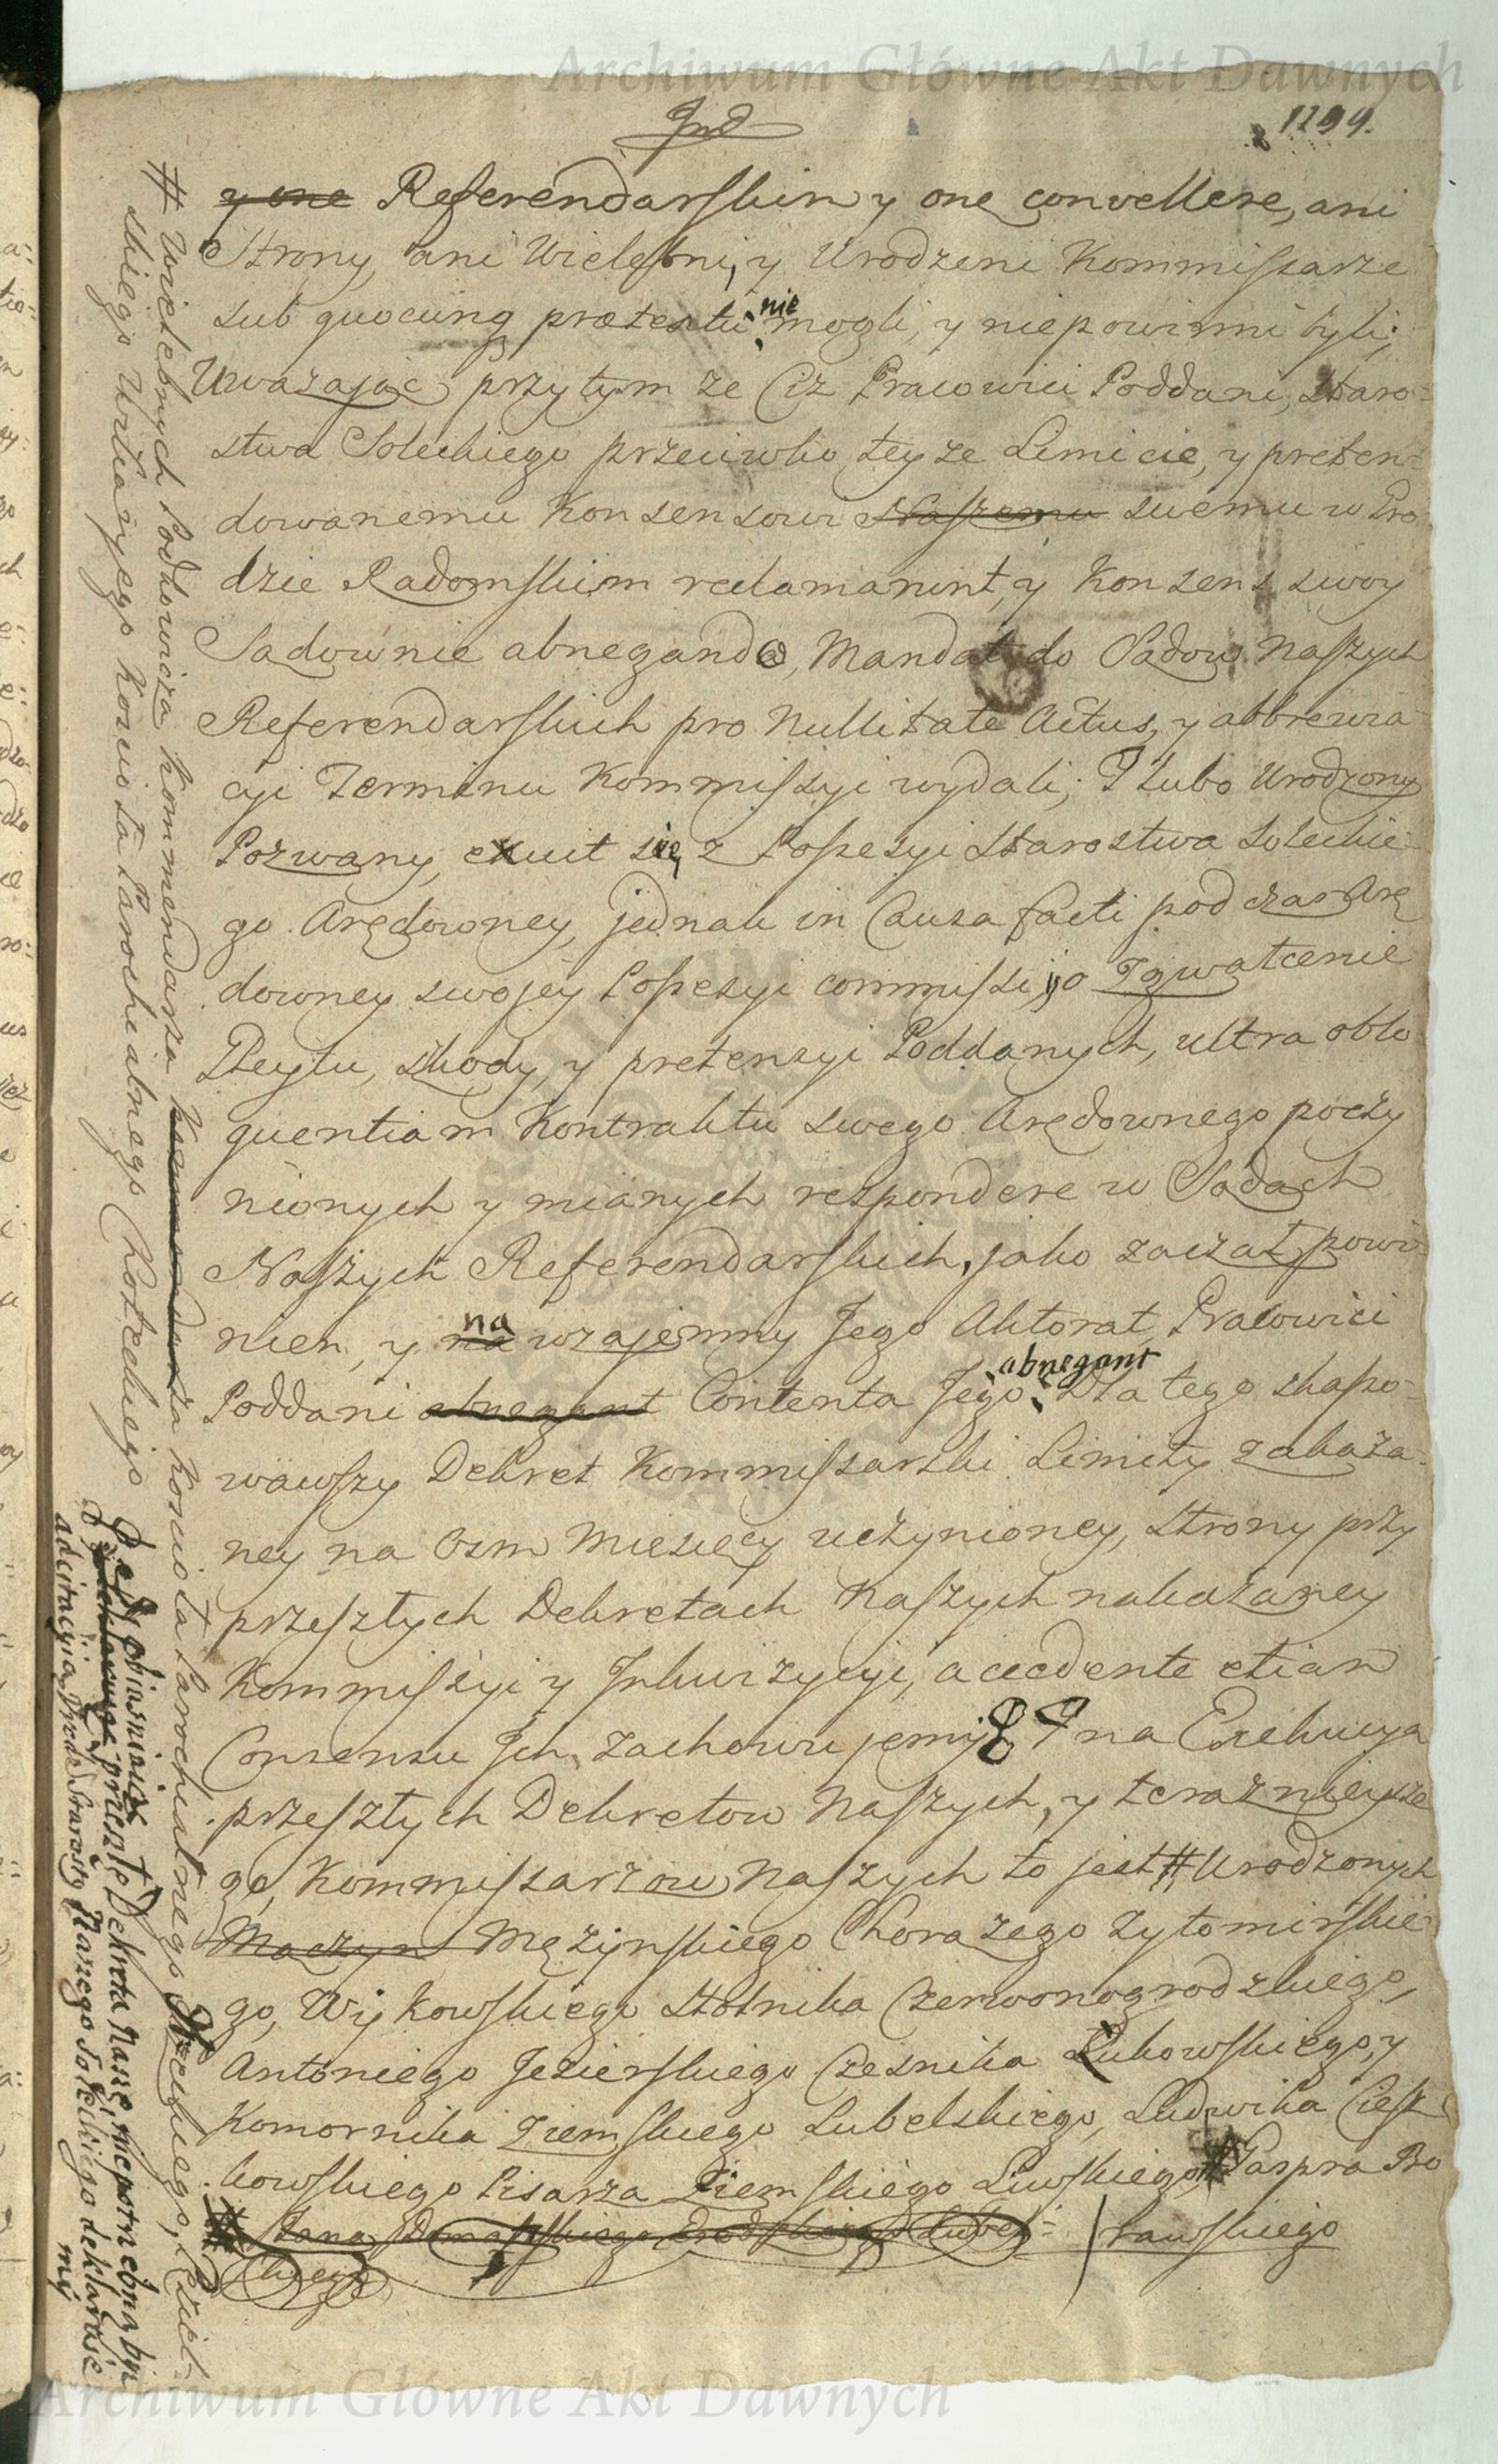 Archiwum Główne Akt Dawnych
Ind
1299.
y one Referendarskim y one convellere, ani
Strony, ani Wielebni, y Urodzeni Kommissarze
sub quocunq prætextu nie mogli, y niepowinni byli;
Uwazając przytym ze Ciz Pracowici Poddani, Staro-
stwa Soleckiego przeciwko teyze Limicie, y preten-
dowanemu Konsensowi Naszemu swemu w Gro
dzie Radomskim reclamarunt, y Konsens swoy
Sądownie abnegando, Mandat do Sądow Naszych
Referendarskich pro Nullitate Actus, y abbrewia
cyi Terminu Kommissyi wydali; I lubo Urodzony
Pozwany, exuit się z Possesyi Starostwa Soleckie-
go Arędowney, jednak in Causa facti podczas Arę
downey swojey Possesyi commissi, o Zgwałcenie
Gleytu, szkody, y pretensyi Poddanych, ultra oblo
quentiam Kontraktu swego Arędownego poczy
nionych y mianych respondere w Sądach
Naszych Referendarskich, jako zaczął powi-
nien, y na na wzajemny Jego Aktorat, Pracowici
Poddani abnegant Contenta Jego abnegant Dla tego skasso-
wawszy Dekret Kommissarski Limity zakaza-
ney na Osm Miesięcy uczynioney, Strony przy
przeszłych Dekretach Naszych nakazaney
Kommissyi y Inkwizycyi, accedente etiam
Consensu Ich, zachowujemy I na Exekucyą
przeszłych Dekretow Naszych, y teraznieysze
go, Kommissarzow Naszych to jest # Urodzonych
Mączyn Męzynskiego Chorążego Zytomirskie-
go, Wykowskiego Stolnika Czerwonogrodzkiego,
Antoniego Jezierskiego Cześnika Łukowskiego, y
Komornika Ziemskiego Lubelskiego, Ludwika Ciesz
kowskiego Pisarza Ziemskiego Liwskiego, # Gaspra Bo
rawskiego
# Jana
# Wielebnych Sadkowicza Kommendarza Kommendarza Kosciola Parochialnego Soleckiego,
skiego Wikaryego Kosciola Parochialnego Choteckiego
obiasniaiąc przeszłe Dekreta Nasze niepotrzebną być
adcitacyią Urodz: Starosty Naszego Soleckiego deklaruie
my
Archiwum Główne Akt Dawnych